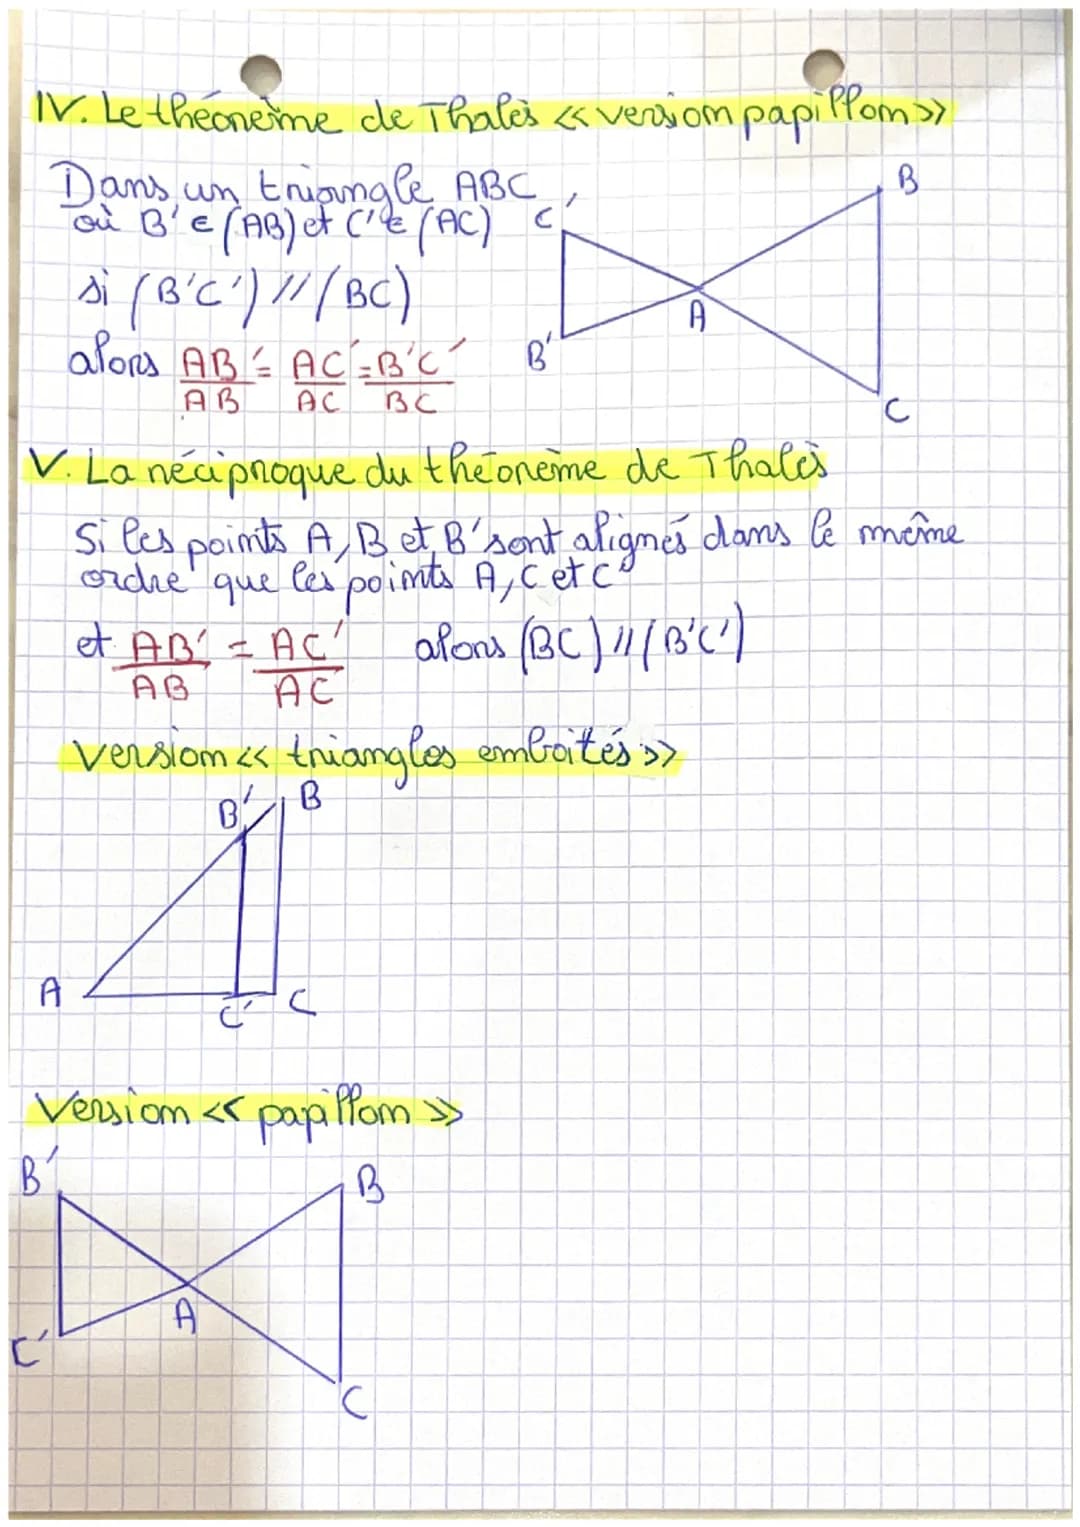 IV. Le théorème de Thalès << version papillon >>
Dans un triangle ABC,
où B' ∈ (AB) et C' ∈ (AC)
si (B'C') // (BC)
alors AB'/AB = AC'/AC = B'C'/BC
C'
B
A
B'
C
V. La réciproque du théorème de Thalès
Si les points A, B et B' sont alignés dans le même
ordre que les points A, C et C'
et AB'/AB = AC'/AC alors (BC) // (B'C')
Version << triangles emboités >>
B' B
A
C' C
Version << papillon >>
B' B
A
C'
C